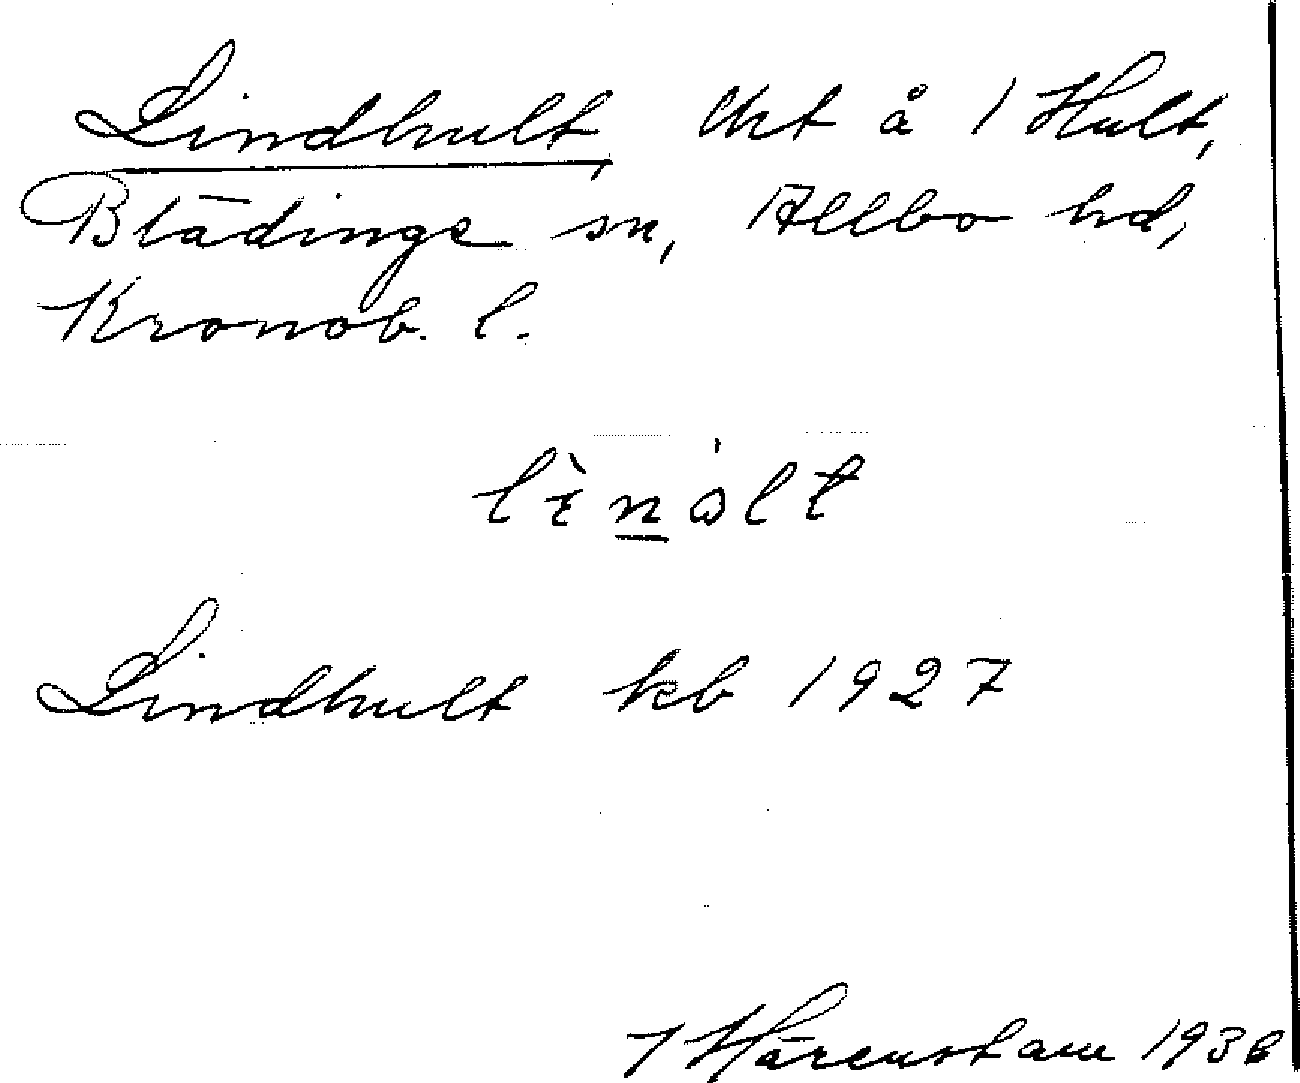 Lindhult, lht å 1 Hult,
Blädinge sn, Allbo hd,
Kronob. l.
lìnált
Lindhult kb 1927
J Härenstam 1936